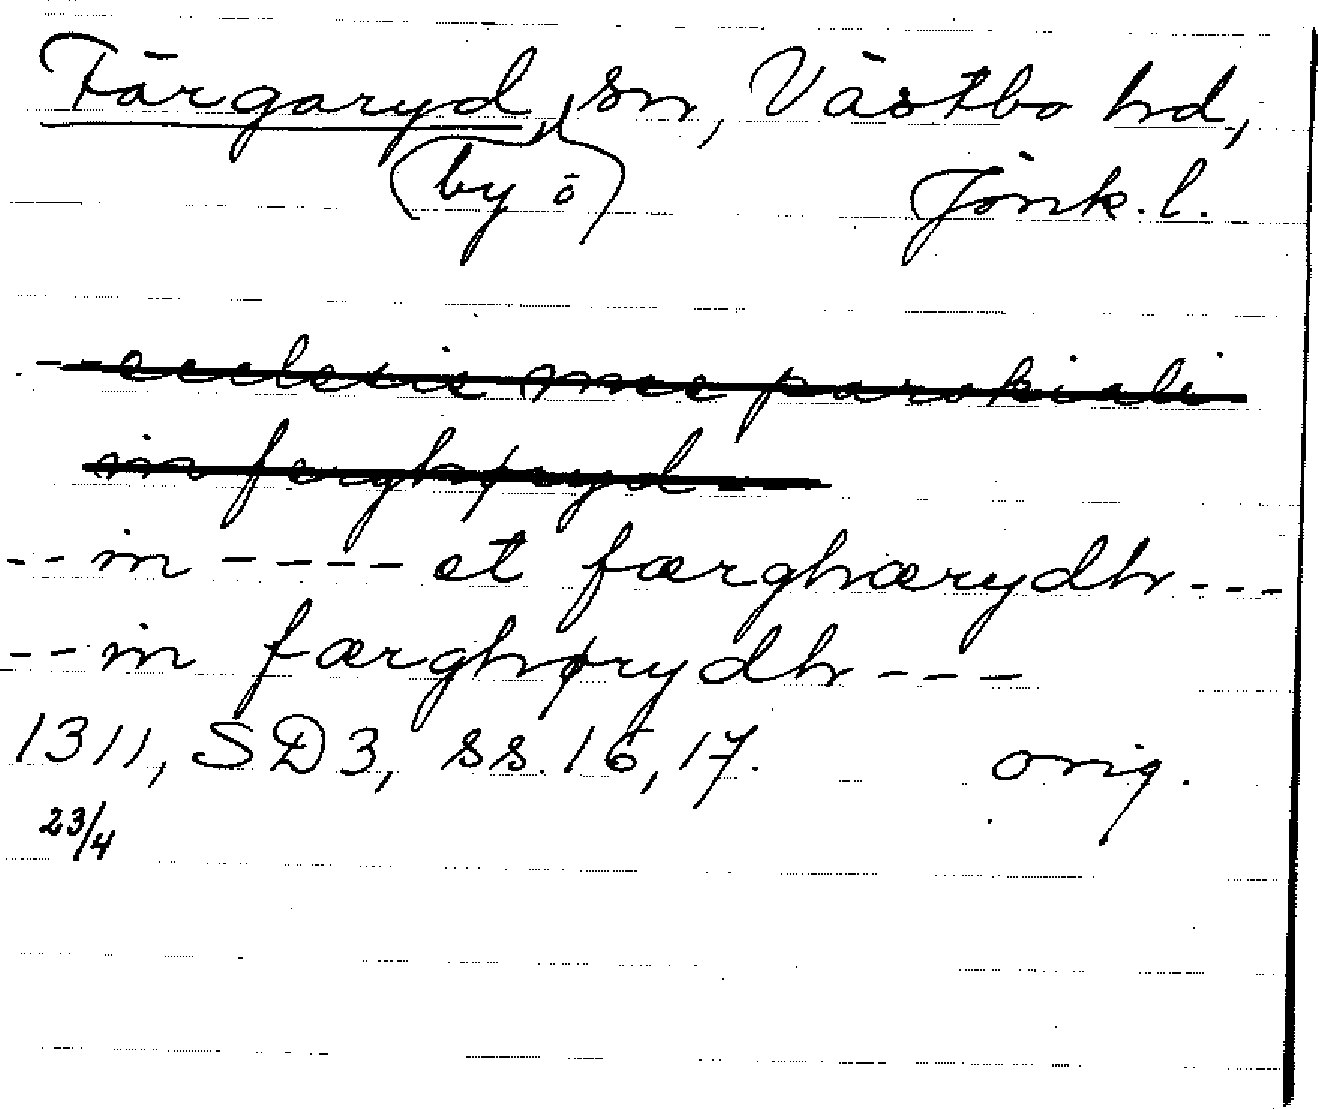 Färgaryd, sn, Västbo hd,
(by ö) Jönk. l.
-- ecclesie mee parokiali
in ferghøryd --
-- in ---- et færghærydh ---
-- in færghørydh ---
1311, SD3, ss. 16, 17. orig.
23/4